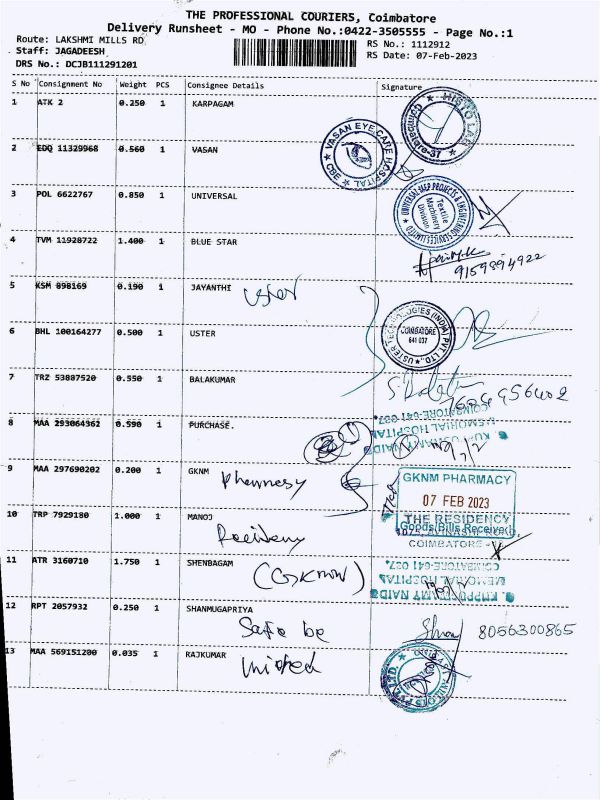 THE PROFESSIONAL COURIERS, Coimbatore
Delivery Runsheet - MO - Phone No.:0422-3505555 - Page No.:1
Route: LAKSHMI MILLS RD
RS No.: 1112912
Staff: JAGADEESH
RS Date: 07-Feb-2023
DRS No.: DCJB111291201
S No Consignment No Weight PCS Consignee Details Signature
1 ATK 2 0.250 1 KARPAGAM
HISTO LAB
Coimbatore-37
2 EDQ 11329968 0.560 1 VASAN
VASAN EYE CARE HOSPITAL
CBE
3 POL 6622767 0.850 1 UNIVERSAL
Textile
Machinery
Division
4 TVM 11928722 1.400 1 BLUE STAR
9159894922
5 KSM 898169 0.190 1 JAYANTHI
Uster
6 BHL 100164277 0.500 1 USTER
USTER TECHNOLOGIES (INDIA) PVT. LTD.
COIMBATORE
641 037
7 TRZ 53887520 0.550 1 BALAKUMAR
8 MAA 293064362 0.590 1 PURCHASE.
COIMBATORE-641 037.
MEMORIAL HOSPITAL
9 MAA 297690202 0.200 1 GKNM
Pharmacy
GKNM PHARMACY
07 FEB 2023
10 TRP 7929180 1.000 1 MANOJ
Residency
THE RESIDENCY
Goods/Bills Received
1075, AVINASHI ROAD,
COIMBATORE -
11 ATR 3160710 1.750 1 SHENBAGAM
(GKNM)
COIMBATORE-641 037.
MEMORIAL HOSPITAL
12 RPT 2057932 0.250 1 SHANMUGAPRIYA
8056300865
13 MAA 569151200 0.035 1 RAJKUMAR
United